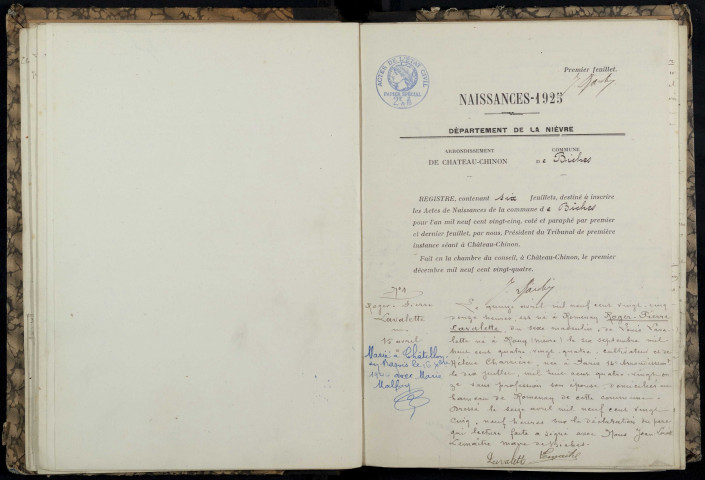 Premier feuillet.
ACTES DE L'ÉTAT CIVIL
PAPIER SPÉCIAL
NAISSANCES-1925
DÉPARTEMENT DE LA NIÈVRE
ARRONDISSEMENT
DE CHATEAU-CHINON
COMMUNE
de Biches
REGISTRE, contenant six feuillets, destiné à inscrire
les Actes de Naissances de la commune de Biches
pour l'an mil neuf cent vingt-cinq, coté et paraphé par premier
et dernier feuillet, par nous, Président du Tribunal de première
instance séant à Château-Chinon.
Fait en la chambre du conseil, à Château-Chinon, le premier
décembre mil neuf cent vingt-quatre.
N° 1
Roger-Pierre
Lavalette
15 avril
Marié à Châtillon
en Bazois le
avec Marie
Le quinze avril mil neuf cent vingt cinq
heures, est né à Romenay Roger-Pierre
Lavalette, du sexe masculin, de Louis Lava-
lette né à (Nièvre) le six septembre mil
huit cent quatre vingt quatre, cultivateur et de
Hélène Charrière née à Paris
le dix juillet mil huit cent quatre-vingt on-
ze sans profession son épouse domiciliés en
hameau de Romenay de cette commune.
Dressé le seize avril mil neuf cent vingt
cinq, neuf heures sur la déclaration du père
qui lecture faite a signé avec Nous Jean
Lemaître maire de Biches.
Lavalette Lemaître